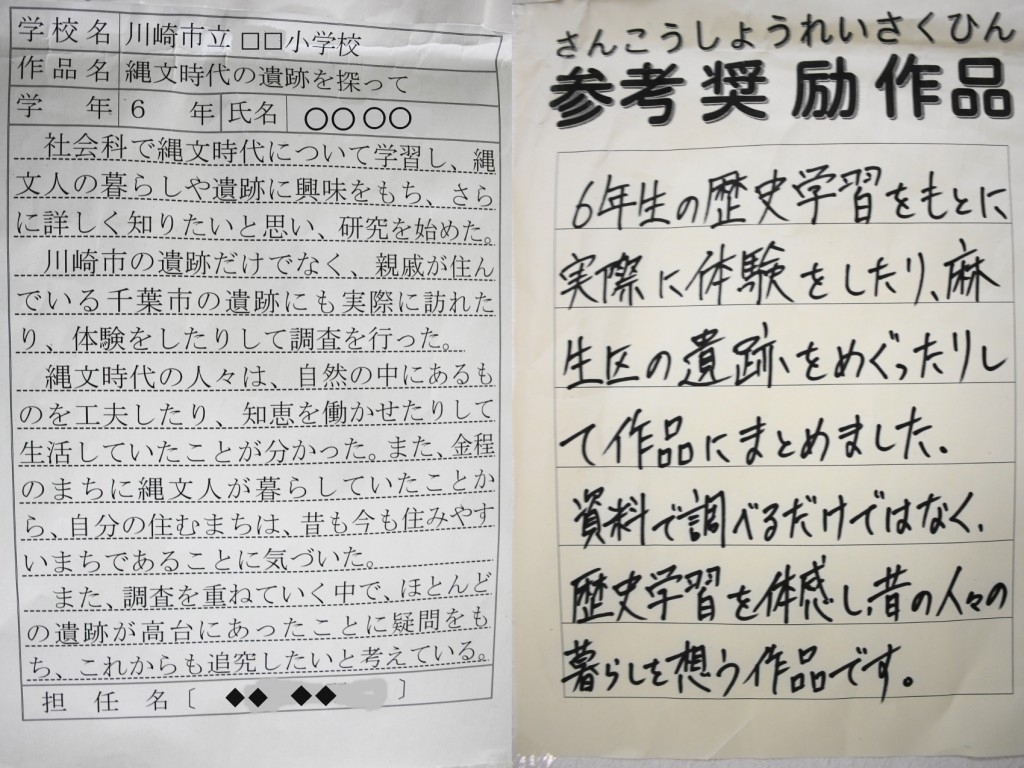 学校名 川崎市立 □□小学校
作品名 縄文時代の遺跡を探って
学年 6年 氏名 ○○ ○○
社会科で縄文時代について学習し、縄
文人の暮らしや遺跡に興味をもち、さら
に詳しく知りたいと思い、研究を始めた。
川崎市の遺跡だけでなく、親戚が住ん
でいる千葉市の遺跡にも実際に訪れた
り、体験をしたりして調査を行った。
縄文時代の人々は、自然の中にあるも
のを工夫したり、知恵を働かせたりして
生活していたことが分かった。また、金程
のまちに縄文人が暮らしていたことか
ら、自分の住むまちは、昔も今も住みやす
いまちであることに気づいた。
また、調査を重ねていく中で、ほとんど
の遺跡が高台にあったことに疑問をも
ち、これからも追究したいと考えている。
担任名〔 ◆◆ ◆◆ 〕
さんこうしょうれいさくひん
参考奨励作品
6年生の歴史学習をもとに
実際に体験をしたり、麻
生区の遺跡をめぐったりし
て作品にまとめました。
資料で調べるだけではなく、
歴史学習を体感し、昔の人々の
暮らしを想う作品です。